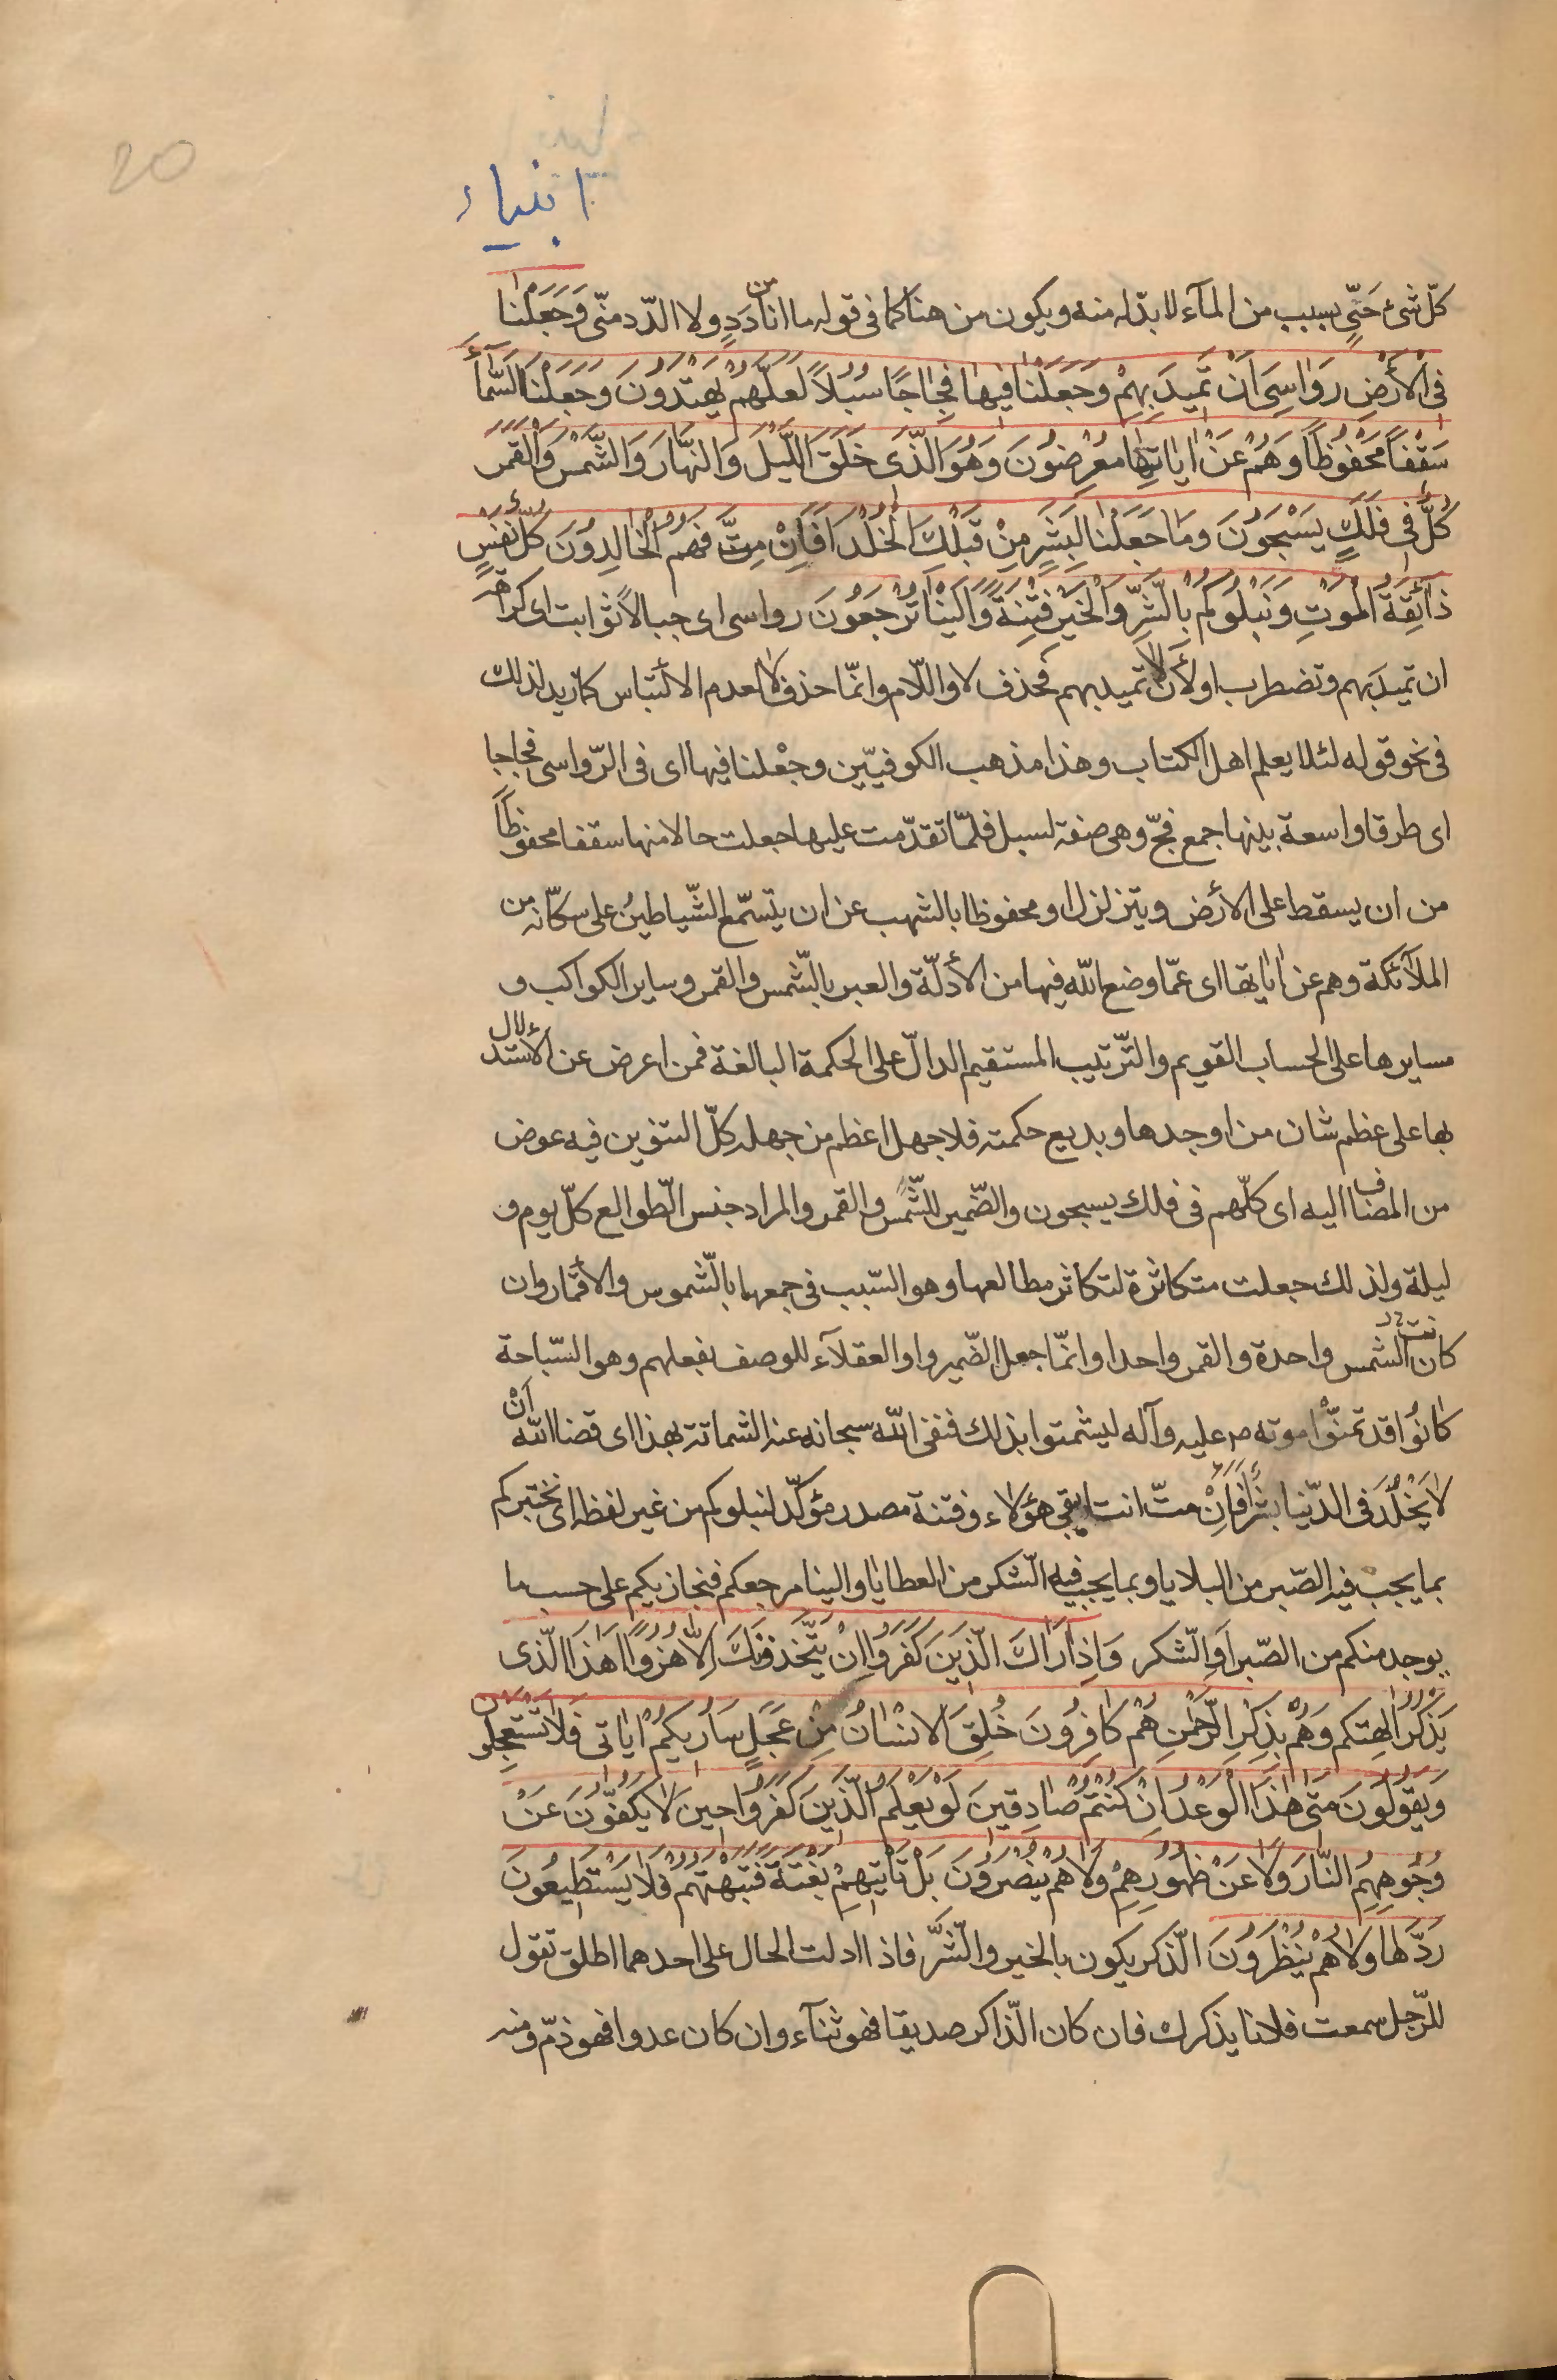 20
انبياء
كلّ شىء حَىّ بسبب من المآء لا بدّ له منه ويكون من هنا كما فى قوله ما انا من دَدٍ ولا الدّد منّى وَجَعَلْنا
فى الْأَرْضِ رَواسِىَ اَنْ تَميدَ بِهِمْ وَجَعَلْنا فيها فِجاجًا سُبُلاً لَعَلَّهُمْ يَهْتَدُونَ وَجَعَلْنَا السَّمآءَ
سَقْفاً مَحْفُوظاً وَهُمْ عَنْ اٰياتِها مُعْرِضُونَ وَهُوَ الَّذى خَلَقَ اللَّيْلَ وَالنَّهارَ وَالشَّمْسَ وَالْقَمَرَ
كُلٌّ فى فَلَكٍ يَسْبَحُونَ وَمَا جَعَلْنا لِبَشَرٍ مِنْ قَبْلِكَ الْخُلْدَ اَفَاِنْ مِتَّ فَهُمُ الْخالِدُونَ كُلُّ نَفْسٍ
ذآئِقَةُ الْمَوْتِ وَنَبْلُوكُمْ بِالشَّرِّ وَالْخَيْرِ فِتْنَةً وَاِلَيْنا تُرْجَعُونَ رواسى اى جبالاً ثوابت اى كراهة
ان تميدَ بهم وتضطرب او لأن لا تميد بهم فحذف لا واللّام وانّما حذف لا لعدم الألتباس كما زيد لذلك
فى نحو قوله لئلا يعلم اهل الكتاب وهذا مذهب الكوفيّين وجعلنا فيها اى فى الرّواسى فجاجا
اى طرقا واسعة بينها جمع فجّ وهى صفة لسبل فلمّا تقدّمت عليها جعلت حالا منها سقفا محفوظاً
من ان يسقط على الأرض ويتزلزل او محفوظا بالشهب عن ان يتسمّع الشّياطينُ على سكّانه من
الملآئكة وهم عن اٰياتها اى عمّا وضع اللّه فيها من الأدلّة والعبر بالشّمس والقمر وساير الكواكب و
مسايرها على الحساب القويم والتّرتيب المستقيم الدالّ على الحكمة البالغة فمن اعرض عن الأستدلال
بها على عظم شان من اوجدها وبديع حكمته فلا جهل اعظم من جهله كلّ التنوين فيه عوض
من المضاف اليه اى كلّهم فى فلك يسبحون والضّمير للشّمس والقمر والمراد جنس الطّوالع كلّ يوم و
ليلة ولذلك جعلت متكاثرة لتكاثر مطالعها وهو السّبب فى جمعها بالشّموس والأقمار وان
كانت الشمس واحدة والقمر واحدا وانّما جعل الضّمير واو العقلآء للوصف بفعلهم وهو السّباحة
كانُوا قد تمنّوْا موته ص عليه وآله ليشمتوا بذلك فنفى اللّه سبحانه عنه الشماتة بهذا اى قضا اللّه اَنْ
لا يَخْلُدَ فى الدّنيا بشرٌ اَفَاِنْ متّ انت ايبقى هؤلاء وفتنة مصدر مؤكّد لنبلوكم من غير لفظه اى نختبركم
بما يجب فيه الصّبر من البلايا وبما يجب فيه الشّكر من العطايا والينا مرجعكم فنجازيكم على حسب ما
يوجد منكم من الصّبر اَوِ الشّكر وَاِذا رَاٰكَ الَّذينَ كَفَرُوا اِنْ يَتَّخِذُونَكَ اِلّا هُزُوًا اَهٰذَا الَّذى
يَذْكُرُ اٰلِهَتَكُمْ وَهُمْ بِذِكْرِ الرَّحْمٰنِ هُمْ كافِرُونَ خُلِقَ الْاِنْسانُ مِنْ عَجَلٍ سَاُريكُمْ اٰياتى فَلا تَسْتَعْجِلُونِ
وَيَقُولُونَ مَتىٰ هٰذَا الْوَعْدُ اِنْ كُنْتُمْ صادِقينَ لَوْ يَعْلَمُ الَّذينَ كَفَرُوا حينَ لا يَكُفُّونَ عَنْ
وُجُوهِهِمُ النّارَ وَلا عَنْ ظُهُورِهِمْ وَلا هُمْ يُنْصَرُونَ بَلْ تَاْتيهِمْ بَغْتَةً فَتَبْهَتُهُمْ فَلا يَسْتَطيعُونَ
رَدَّها وَلا هُمْ يُنْظَرُونَ الذّكر يكون بالخير والشّرّ فاذا ادلت الحال على احدهما اطلق تقول
للرّجل سمعت فلانا يذكرك فان كان الذّاكر صديقا فهو ثنآء وان كان عدوا فهو ذمّ ومنه